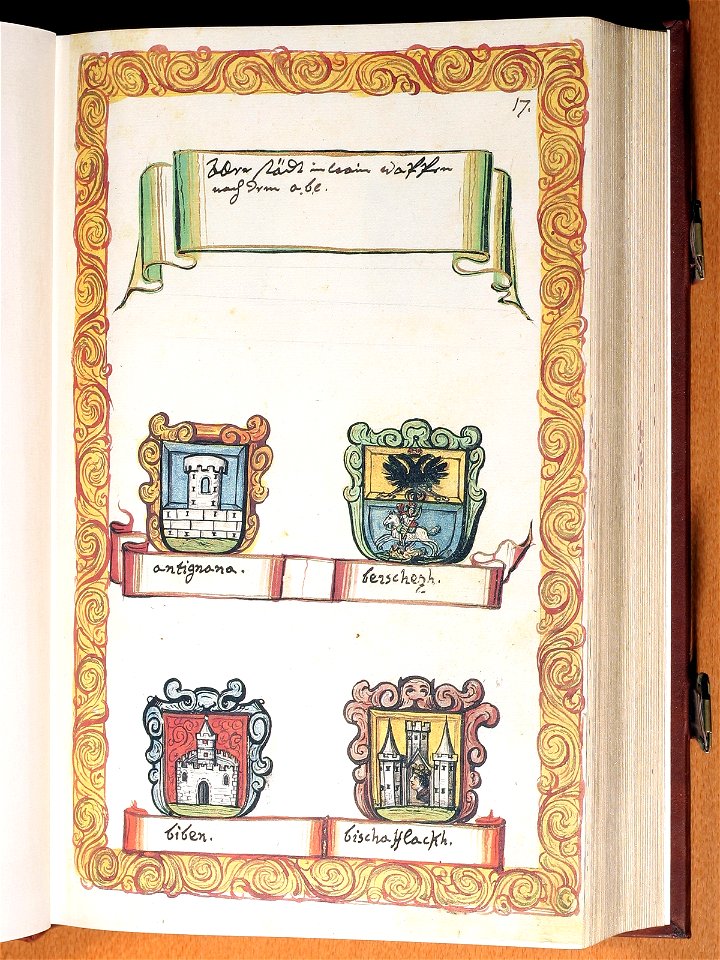 17.
städt in Crain wappen
nach dem a.bc.
antignana.
berschezh.
biben.
bischafflackh.